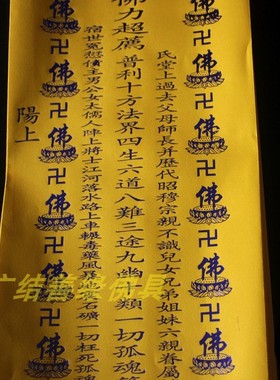 佛卍佛卍佛卍佛卍佛卍佛卍佛
氏堂上過去父母師長并歷代昭穆宗親不識兒女兄弟姐妹六親眷屬
佛力超薦 普利十方法界四生六道八難三途九幽 類一切孤魂等
宿世冤愆債主男公女太儒人陣上將士江河落水路上車輾毒藥風暴 石礦一切枉死孤魂
佛卍佛卍佛卍佛卍佛卍佛卍佛
陽上
广结善缘 具